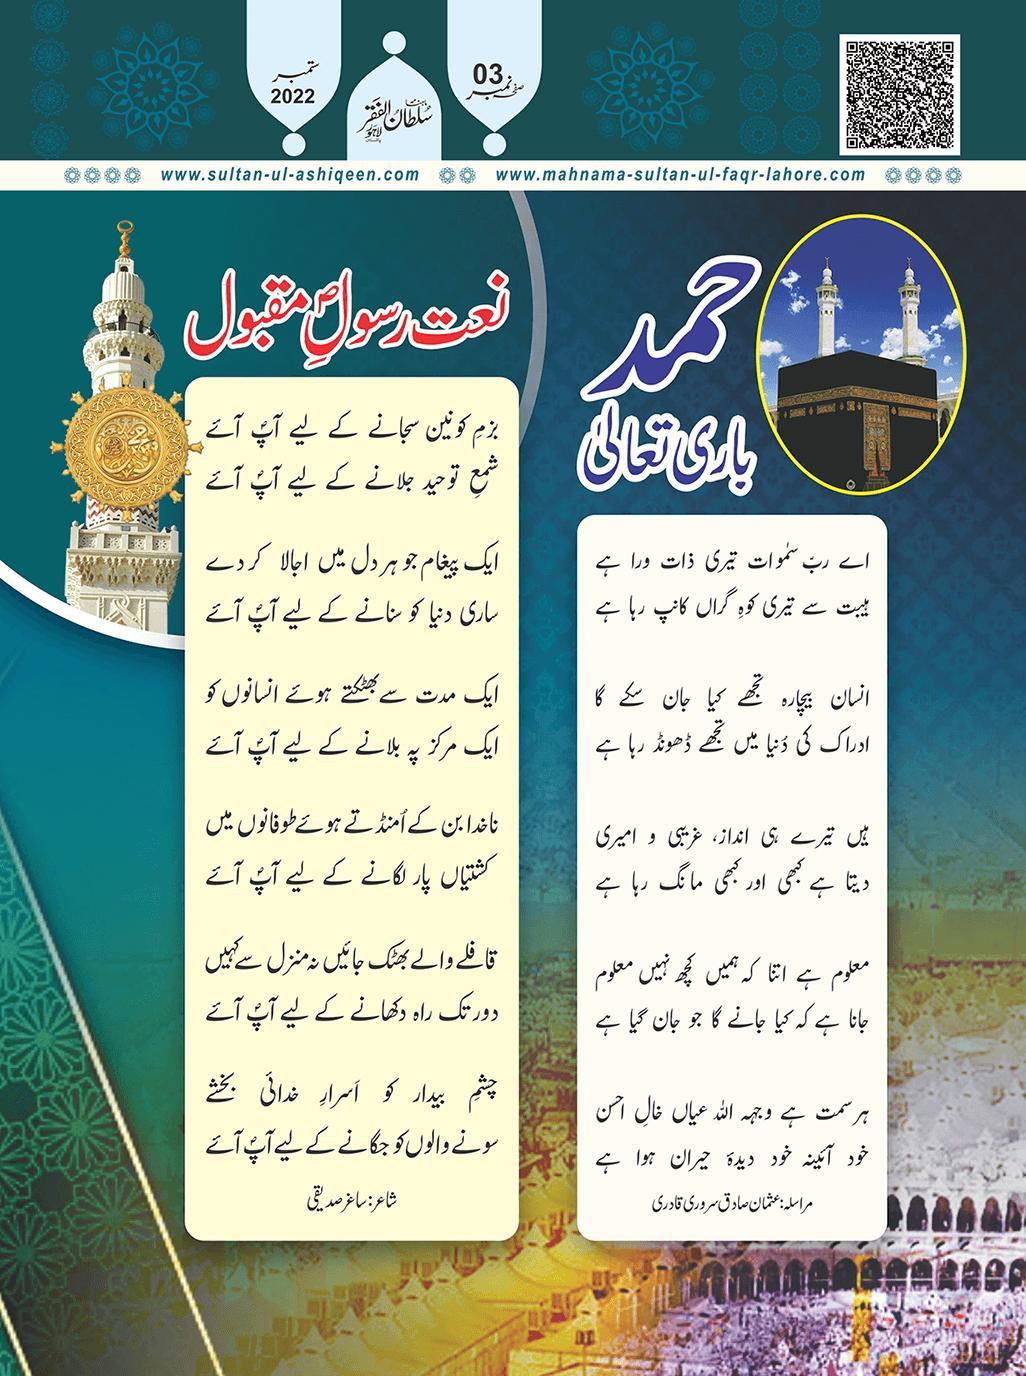 ستمبر
2022
ماہنامہ
سُلطان الفقر
لاہور
صفحہ نمبر
03
www.sultan-ul-ashiqeen.com
www.mahnama-sultan-ul-faqr-lahore.com
حمد
باری تعالیٰ
اے ربّ سمٰوات تیری ذات ورا ہے
ہیبت سے تیری کوہِ گراں کانپ رہا ہے
انسان بیچارہ تجھے کیا جان سکے گا
ادراک کی دُنیا میں تجھے ڈھونڈ رہا ہے
ہیں تیرے ہی انداز، غریبی و امیری
دیتا ہے کبھی اور کبھی مانگ رہا ہے
معلوم ہے اتنا کہ ہمیں کچھ نہیں معلوم
جانا ہے کہ کیا جانے گا جو جان گیا ہے
ہر سمت ہے وجہہ اللہ عیاں خالِ احسن
خود آئینہ خود دیدۂ حیران ہوا ہے
مراسلہ: عثمان صادق سروری قادری
نعت رسولِ مقبولؐ
بزمِ کونین سجانے کے لیے آپؐ آئے
شمعِ توحید جلانے کے لیے آپؐ آئے
ایک پیغام جو ہر دل میں اجالا کر دے
ساری دنیا کو سنانے کے لیے آپؐ آئے
ایک مدت سے بھٹکتے ہوئے انسانوں کو
ایک مرکز پہ بلانے کے لیے آپؐ آئے
ناخدا بن کے اُمنڈتے ہوئے طوفانوں میں
کشتیاں پار لگانے کے لیے آپؐ آئے
قافلے والے بھٹک جائیں نہ منزل سے کہیں
دور تک راہ دکھانے کے لیے آپؐ آئے
چشمِ بیدار کو اَسرارِ خدائی بخشے
سونے والوں کو جگانے کے لیے آپؐ آئے
شاعر: ساغر صدیقی